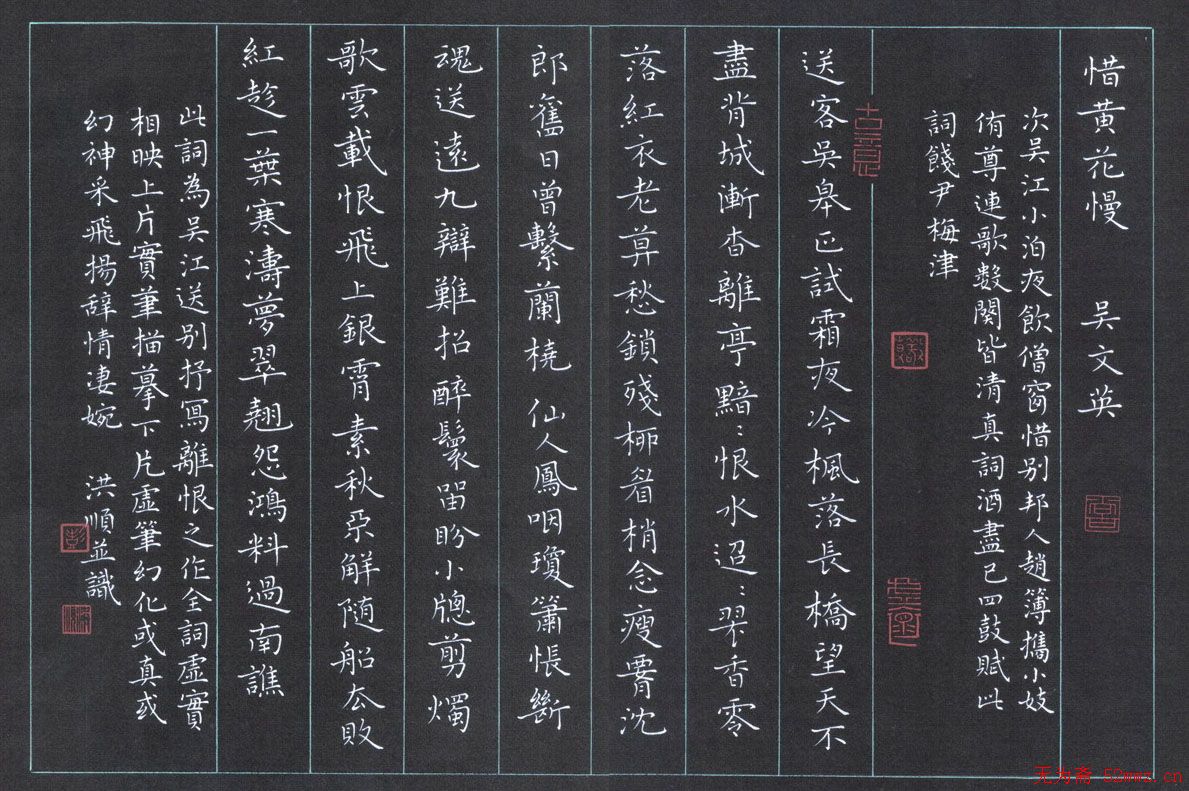 惜黄花慢 吴文英
次吴江小泊夜飲僧窗惜别邦人趙簿攜小妓
侑尊連歌数闋皆清真詞酒盡已四鼓賦此
詞餞尹梅津
古意
送客吳皋正試霜夜冷楓落長橋望天不
盡背城漸杳離亭黯〻恨水迢〻翠香零
落紅衣老暮愁鎖殘栁眉梢念瘦腰沈
郎舊日曾繫蘭橈 仙人鳳咽瓊簫悵斷
魂送遠九辯難招醉鬟畱盼小牕剪燭
歌雲載恨飛上銀霄素秋不解随船去敗
紅趁一葉寒濤夢翠翹怨鴻料過南譙
此詞為吴江送别抒寫離恨之作全詞虛實
相映上片實筆描摹下片虛筆幻化或真或
幻神采飛揚辞情凄婉 洪順並識
无为斋 52wwz.cn